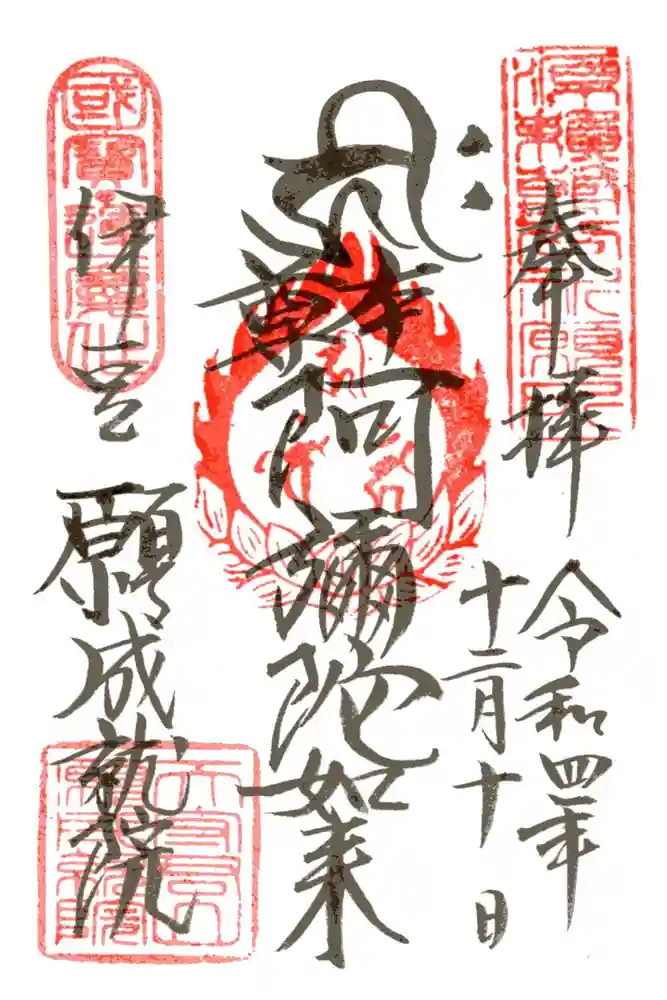 奉拝
令和四年
十二月十日
本尊
阿彌陀如来
伊豆
願成就院
國寳